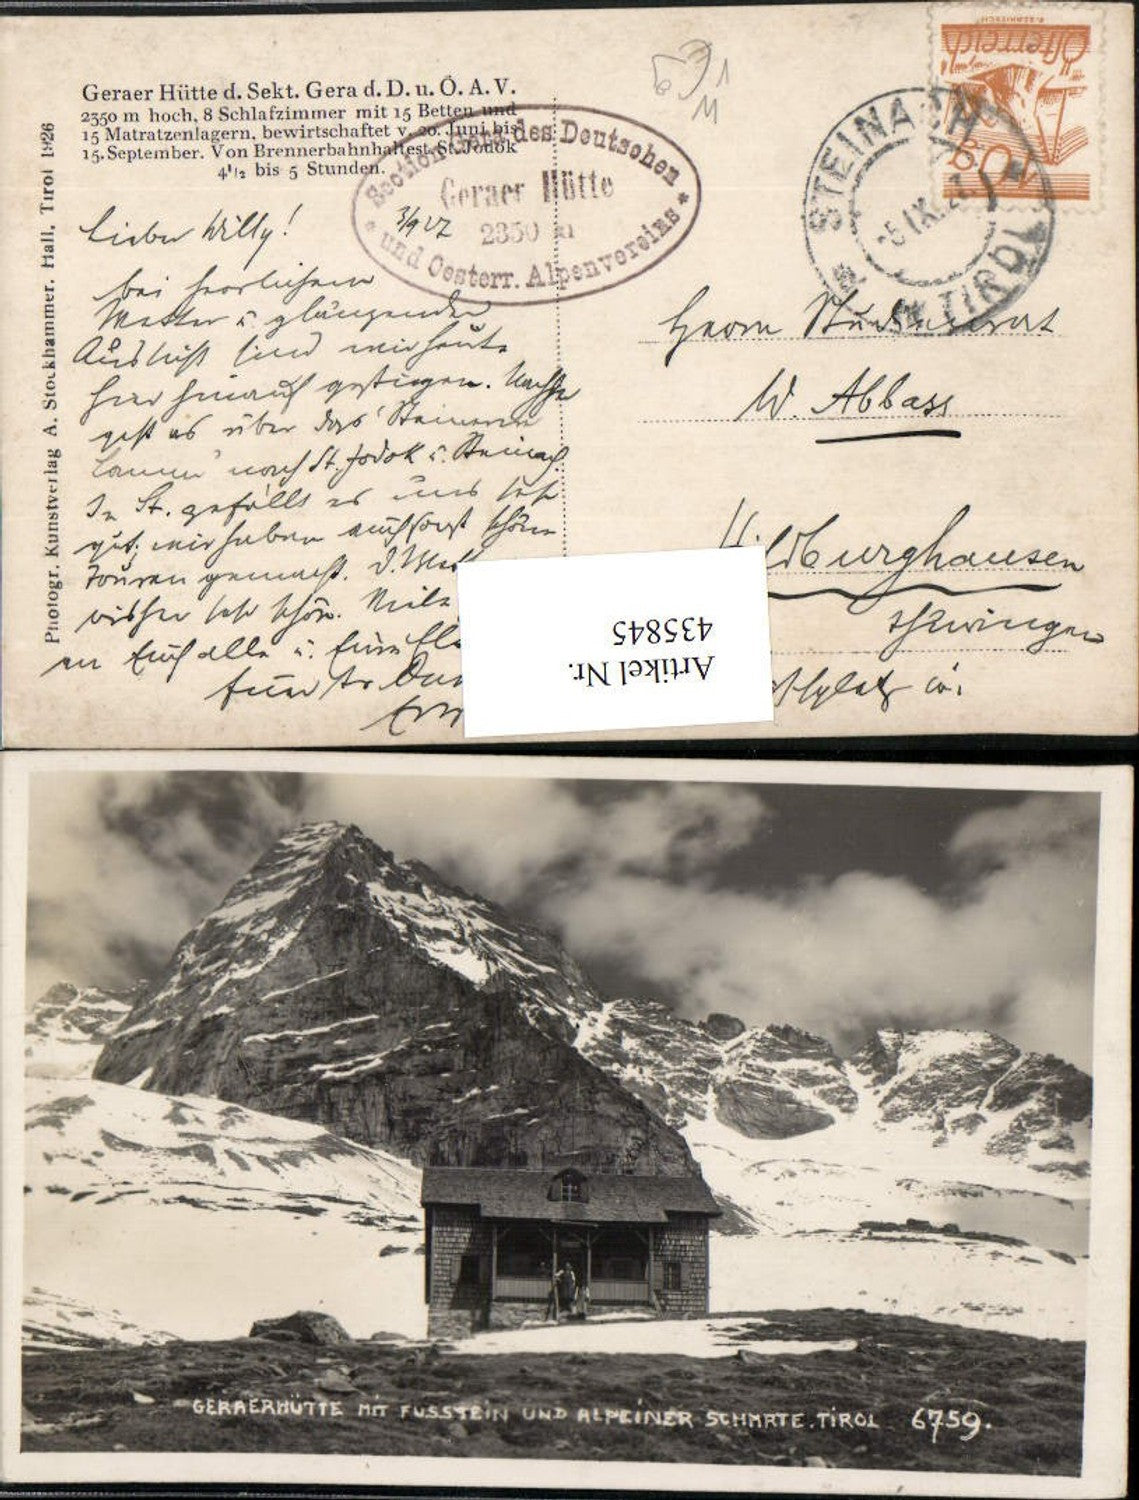 Geraer Hütte d. Sekt. Gera d. D. u. Ö. A. V.
2350 m hoch, 8 Schlafzimmer mit 15 Betten und
15 Matratzenlagern, bewirtschaftet v. 20. Juni bis
15. September. Von Brennerbahnhaltest. St. Jodok
4¹/₂ bis 5 Stunden.
Section Gera des Deutschen
Geraer Hütte
2350 m
* und Oesterr. Alpenvereins *
Photogr. Kunstverlag A. Stockhammer, Hall, Tirol 1926
Österreich
STEINACH
TIROL
3/9 27
Lieber Willy!
bei herrlichem
Wetter u. glänzender
Aussicht sind wir heute
hier hinauf gestiegen.
geht es über das Steinerne
Lamm nach St. Jodok u. Steinach
In St. gefällt es uns sehr
gut, wir haben auch sonst schöne
Touren gemacht.
sehr schön.
an Euch alle u. Eure
Herrn Studienrat
W. Abbass
Hildburghausen
Thüringen
Artikel Nr.
435845
GERAERHÜTTE MIT FUSSSTEIN UND ALPEINER SCHARTE. TIROL 6759.